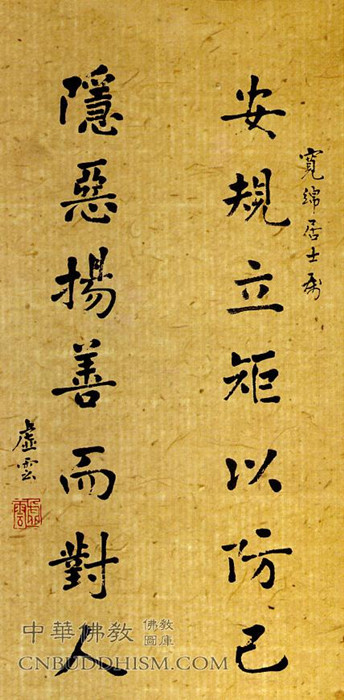 寬綿居士屬
安規立矩以防己
隱惡揚善而對人
虛雲
虛雲
中華佛教
佛教
圖庫
CNBUDDHISM.COM